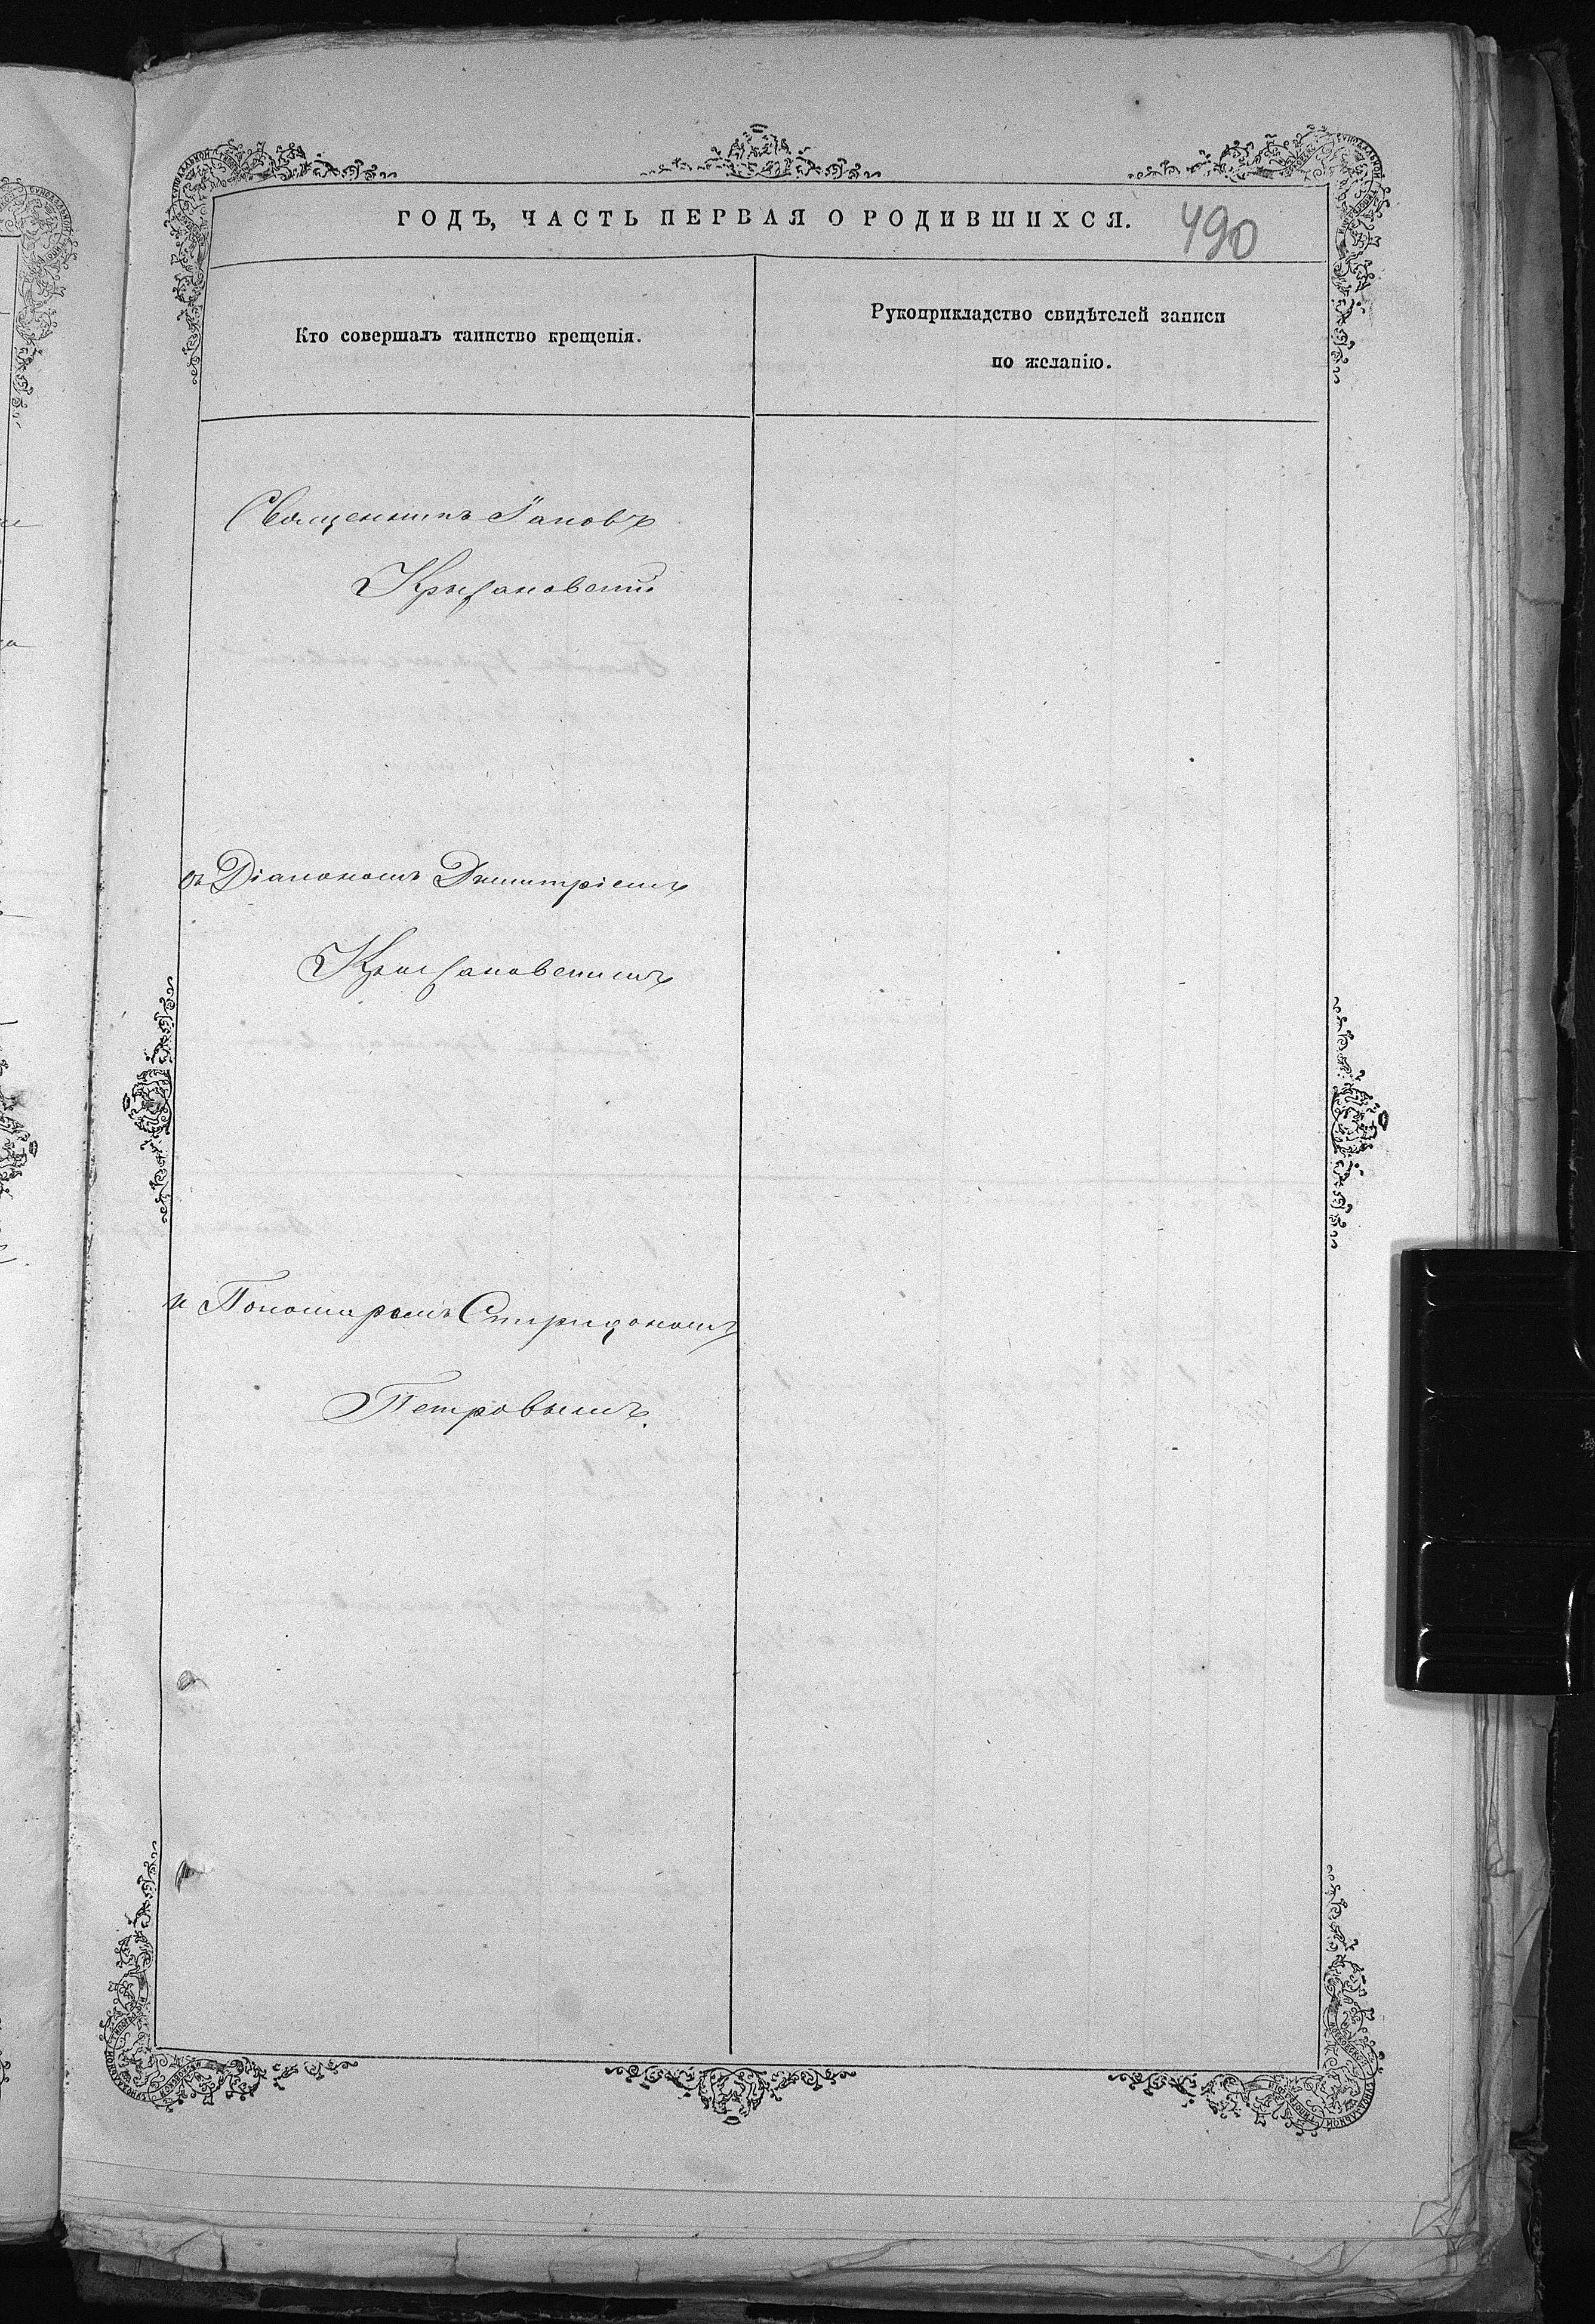 ГОДЪ, ЧАСТЬ ПЕРВАЯ О РОДИВШИХСЯ.
490
Кто совершалъ таинство крещенія.
Рукоприкладство свидѣтелей записи
по желанію.
Священникъ Іаковъ
Крыжановскій
съ Діакономъ Димитріемъ
Крыжановскимъ
и Пономаремъ Спиридономъ
Петровымъ.